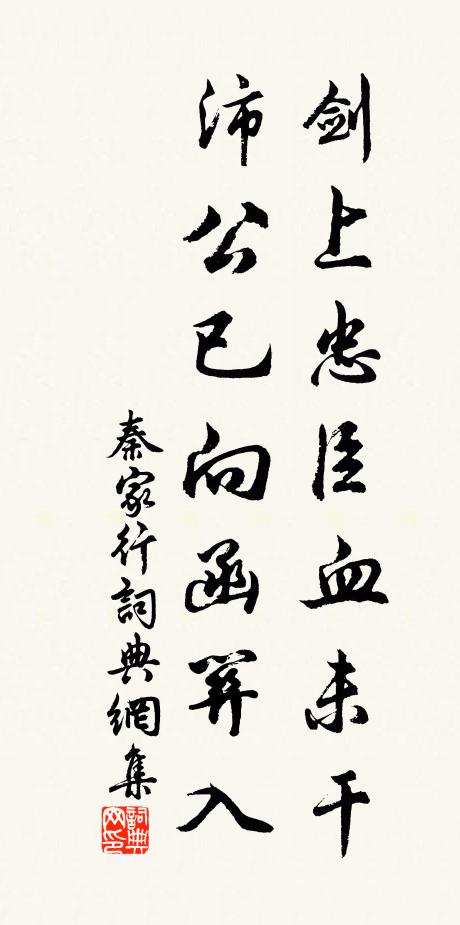 剑上忠臣血未干
沛公已向函関入
秦家行詞典網集
詞典
网印